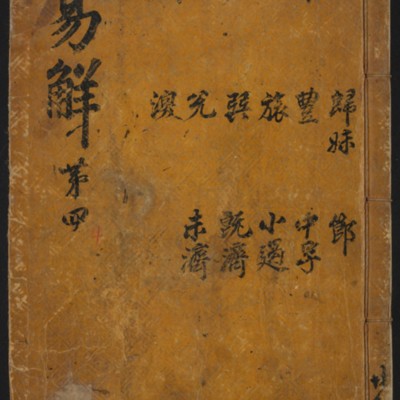 易觧
第四
歸妹
豊
旅
巽
兊
渙
節
中孚
小過
既濟
未濟